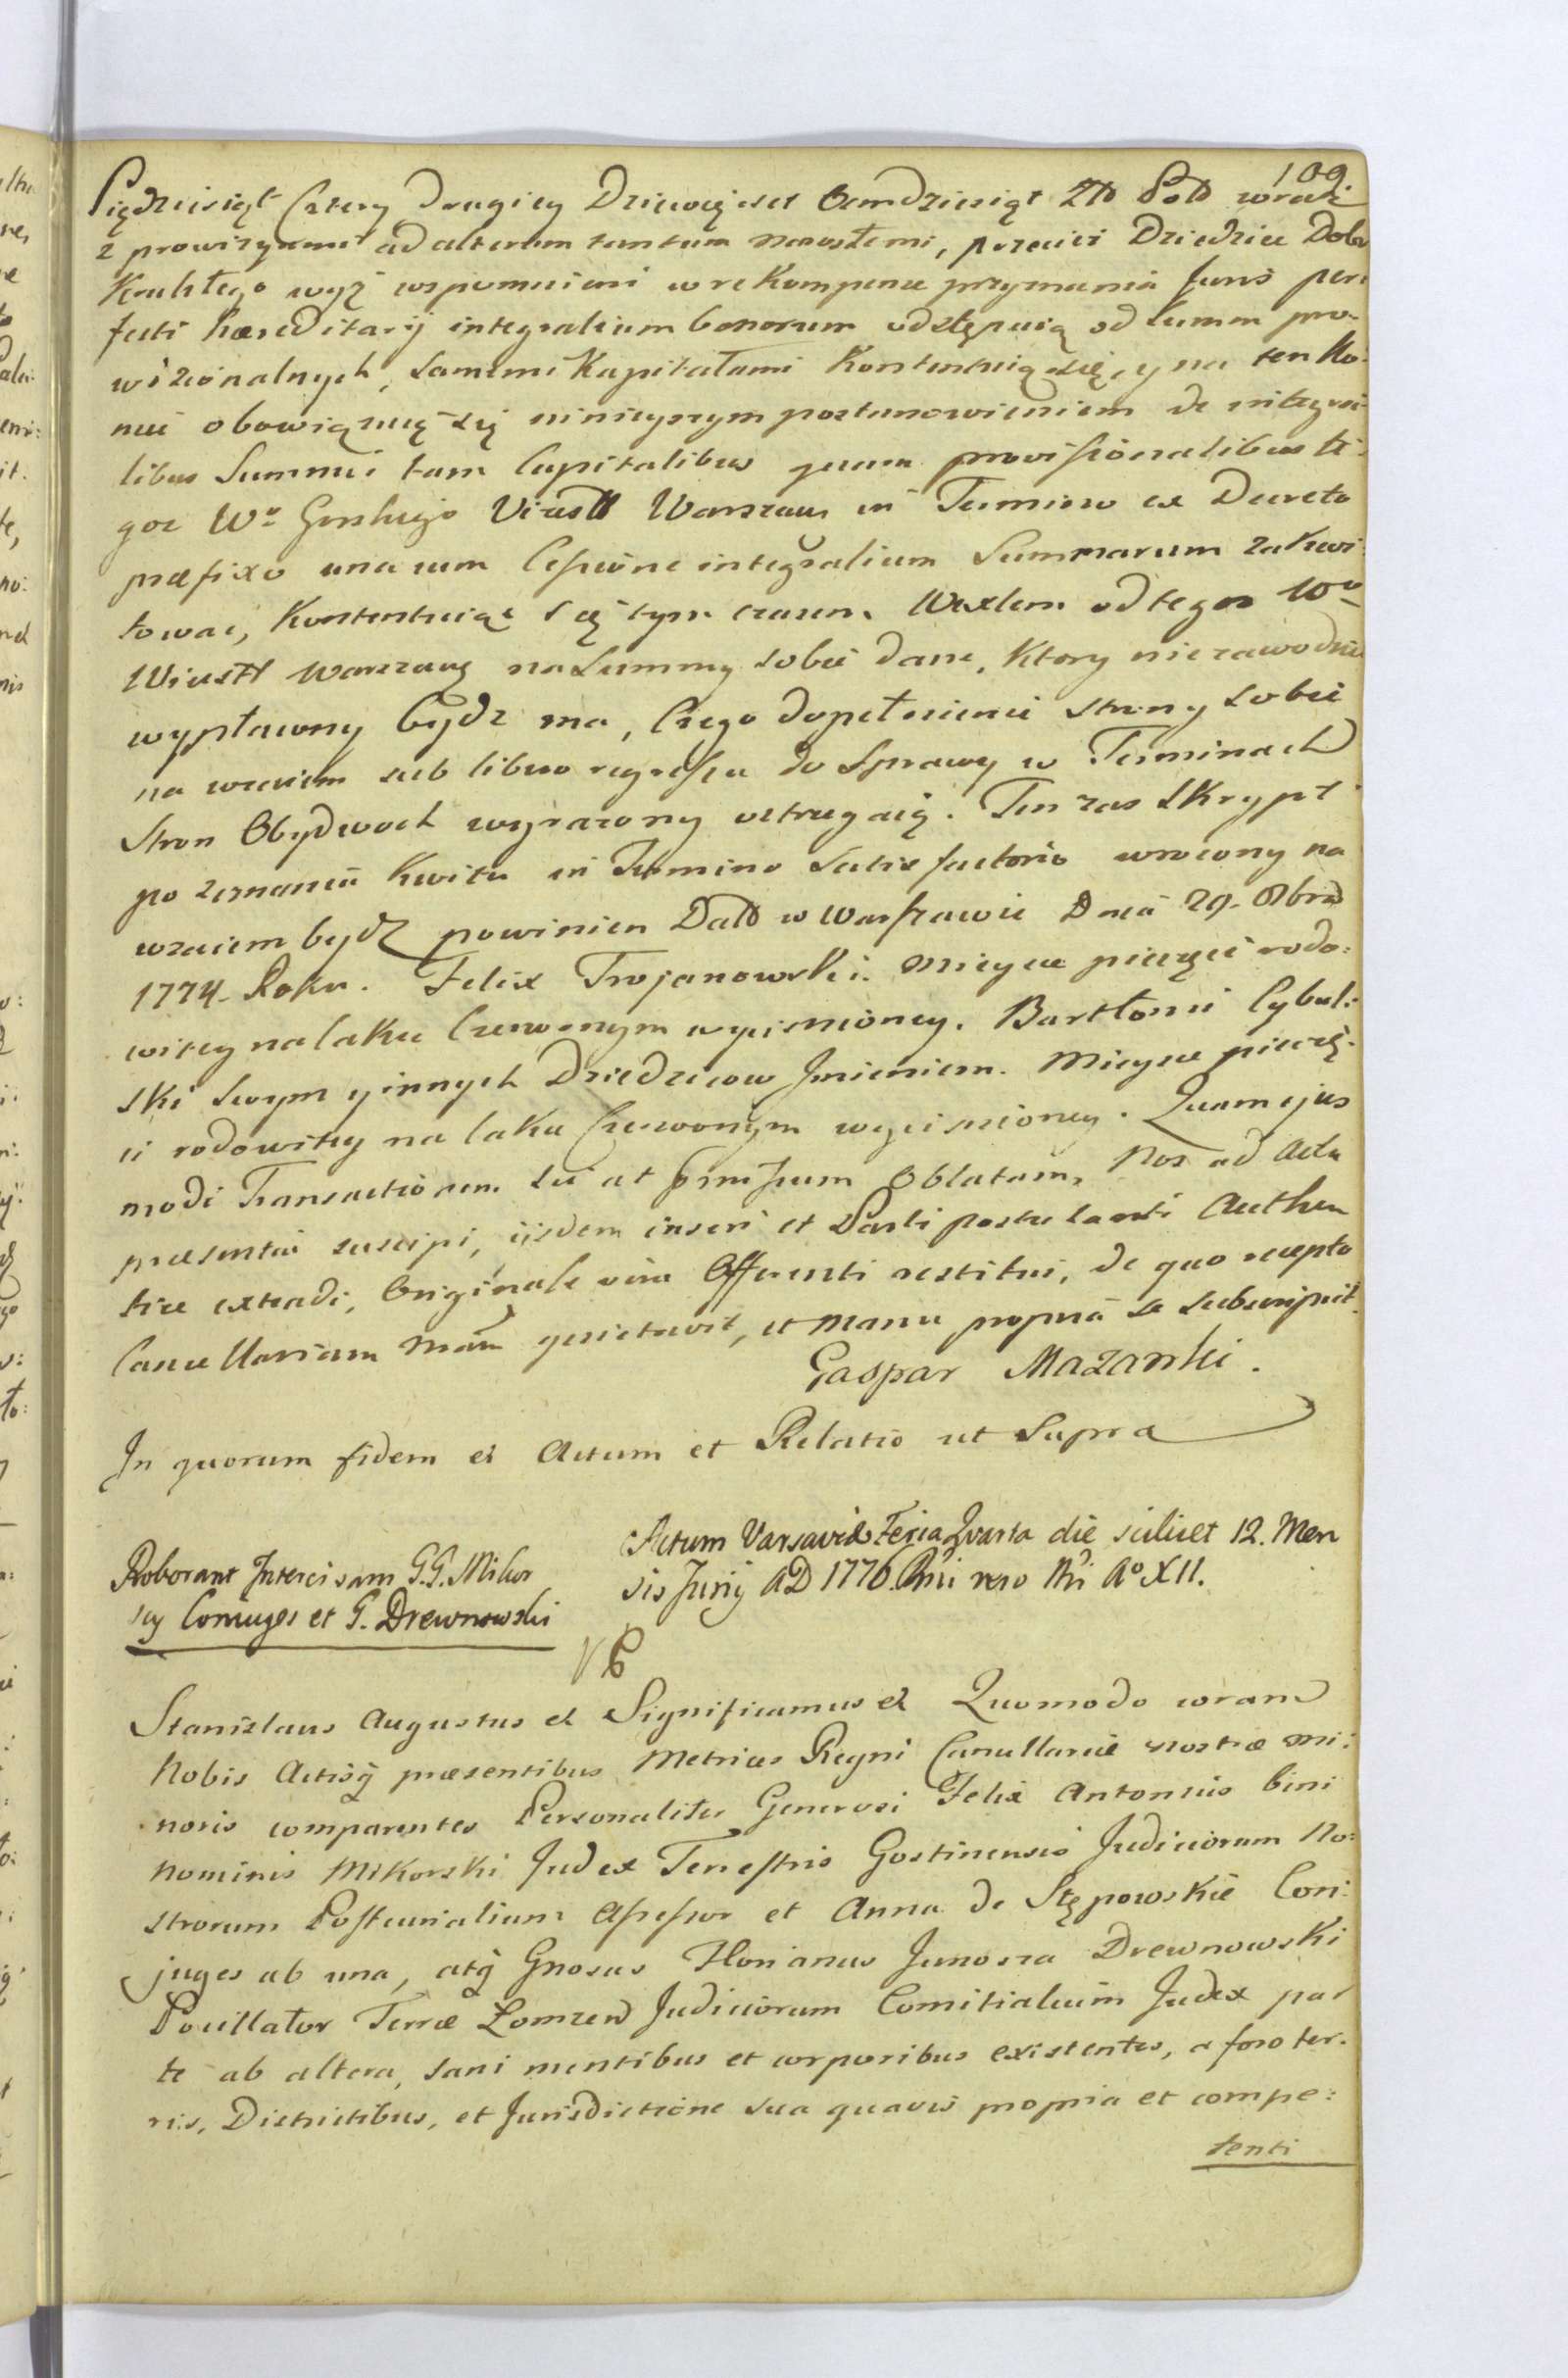 109
Pięдziesiąt Cztery Drugiey Dziewięset Ośmdziesiąt Zło Pols wraz
z prowizyami ad alterum tantum narosłemi, przecież Dziedzice Dobr
wyż wspomnieni w rekompense przyznania Juris per
fecti hæreditarij integralium bonorum odstępuią od Summ pro-
wizionalnych, samemi Kapitałami Kontentuią się, y na ten Ko-
niec obowiązuię się ninieyszym postanowieniem de integra-
libus Summis tam Capitalibus quam provisionalibus te-
goż Wo Gorskiego Viestt Warszaw in Termino ex Decreto
præfixo una cum Cessione integralium Summarum zakwi-
tować, Kontentuiąc się tym czasem Wexlem od tegoż Wo
Wicestt Warszaws na Summy sobie dane, Ktory niezawodnie
wypłacony bydz ma, Czego dopełnienie strony sobie
na wzaiem sub libero regressu do Sprawy w Terminach
Stron Obydwoch wyrazony ostrzegaią. Ten zas Skrypt
po zeznaniu Kwitu in Termino Satisfactorio wrocony na
wzaiem bydź powinien Datt w Warszawie Dnia 29. Obris
1774. Roku. Felix Trojanowski. Mieysce pieczęci rodo:
witey na laku Czerwonym wyciśnioney. Bartłomi Cybul:
ski Swym y innych Dziedzicow Jmieniem. Mieysce pieczę-
ci rodowitey na laku Czerwonym wyciśnioney. Quam ejus
modi Transactionem sic ut præmissum Oblatam, Nos ad Acta
præsentia suscipi, iisdem inseri et Parti postulanti Authen
tice extradi, Originale vero Offerenti restitui, de quo recepto
Cancellariam Nram quietavit, et manu propriâ se subscripsit.
Gaspar Mazanki.
In quorum fidem et Actum et Relatio ut Supra
Roborant Intercisam G.G. Mikor
scy Coniuges et G. Drewnowski
Actum Varsaviæ Feria Qvarta die scilicet 12. Men
sis Junij AD 1776. Rni vero Nri Aº XII.
Stanislaus Augustus et Significamus et Quomodo coram
Nobis Actisq præsentibus Metrices Regni Cancellariæ nostræ mi:
noris comparentes Personaliter Generosi Felix Antonius bini
nominis Mikorski Judex Terrestris Gostinensis Judiciorum No:
strorum Postcurialium Assessor et Anna de Stępowskie Con:
juges ab una, atq Gnosus Florianus Junosza Drewnowski
Pocillator Terræ Lomzen Judiciorum Comitialium Judex par
te ab altera, sani mentibus et corporibus existentes, a foro ter:
ris, Districtibus, et Jurisdictione sua quavis propria et compe:
tenti